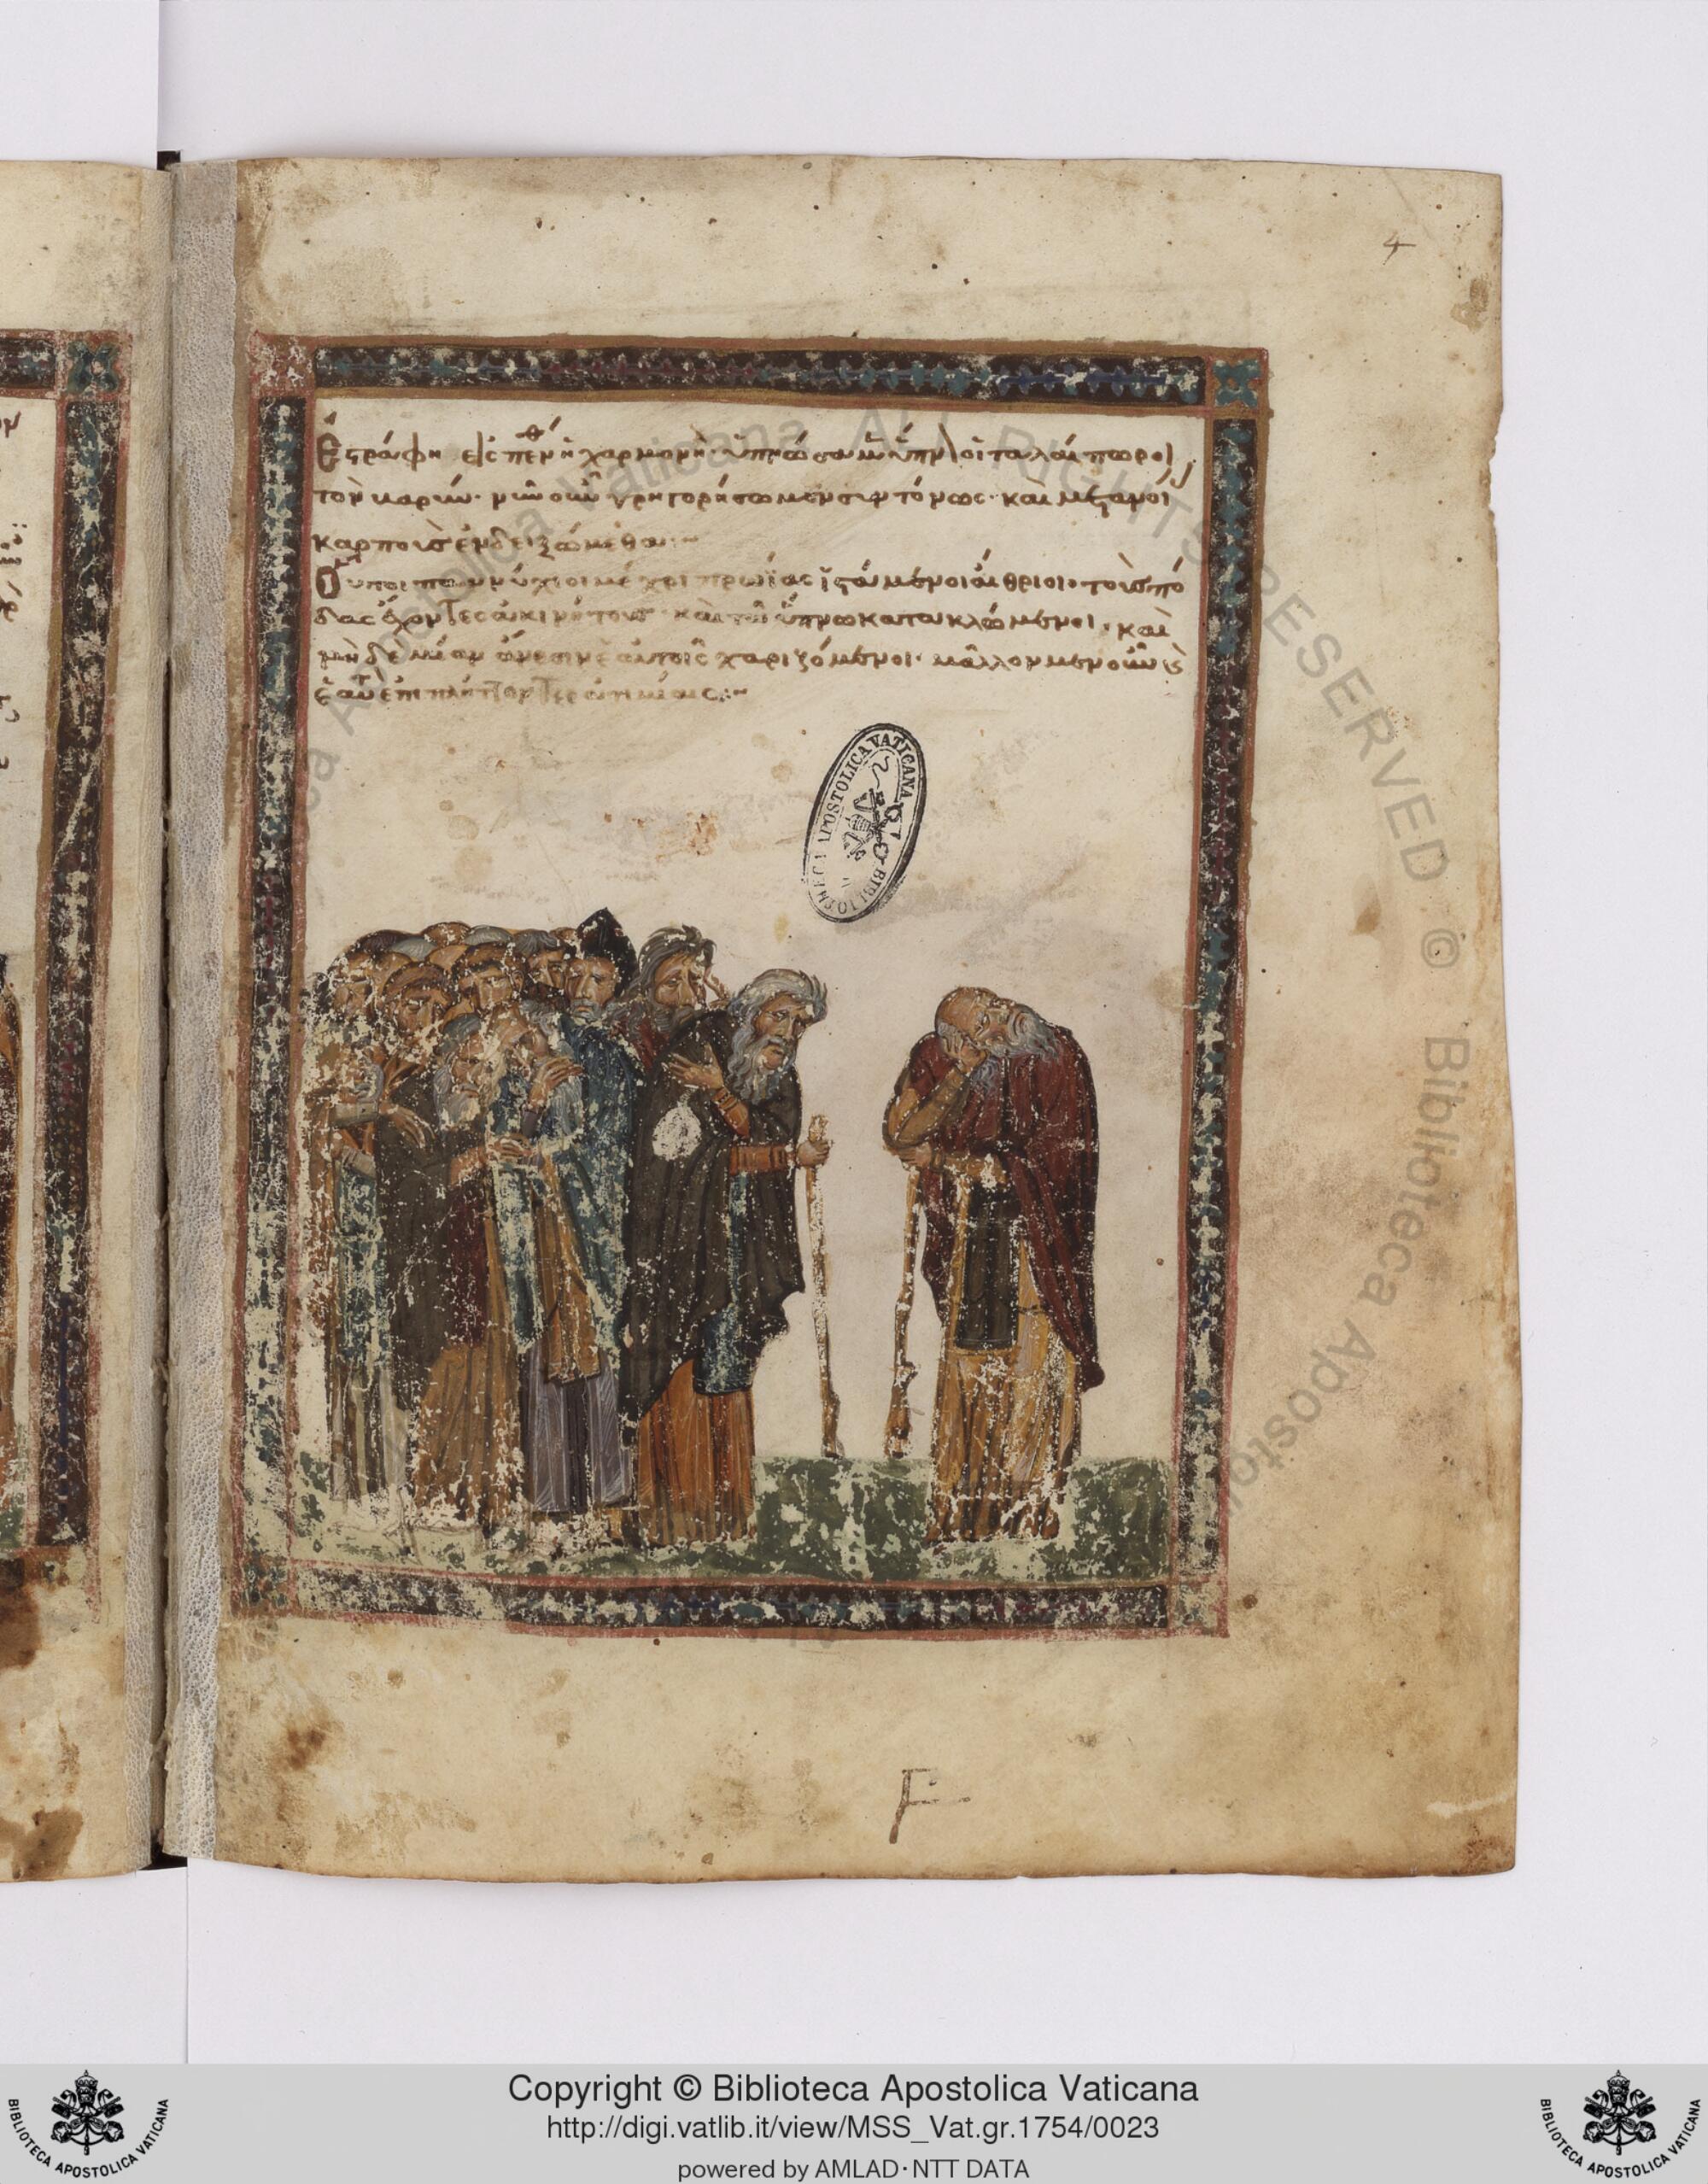 4
Ἐστράφη εἰς πένθ ἡ χαρμονὴ· ὑπνώσαμεν ὕπν οἱ ταλαίπωροι
τὸν καρίων· νῦν οὖν γρηγορήσωμεν συντόνως· καὶ μετανοί
καρποὺς ἐνδειξώμεθα:~
Οὗτοι παννύχιοι μέχρι πρωΐας ἱστάμενοι αἴθριοι· τοὺς πό
δας ἔχοντες ἀκινήτους· καὶ τῶ ὕπνω κατακλώμενοι· καὶ
μὴ δὲ μίαν ἄνεσιν ἑαυτοῖς χαριζόμενοι· μᾶλλον μὲν οὖν
ἑαυτ ἐπιπλήττοντες ἀτιμίαις:~
BIBLIOTHECA APOSTOLICA VATICANA
F
Biblioteca Apostolica Vaticana ALL RIGHTS RESERVED © Biblioteca Apostolica
Copyright © Biblioteca Apostolica Vaticana
http://digi.vatlib.it/view/MSS_Vat.gr.1754/0023
powered by AMLAD·NTT DATA
BIBLIOTECA APOSTOLICA VATICANA
BIBLIOTECA APOSTOLICA VATICANA